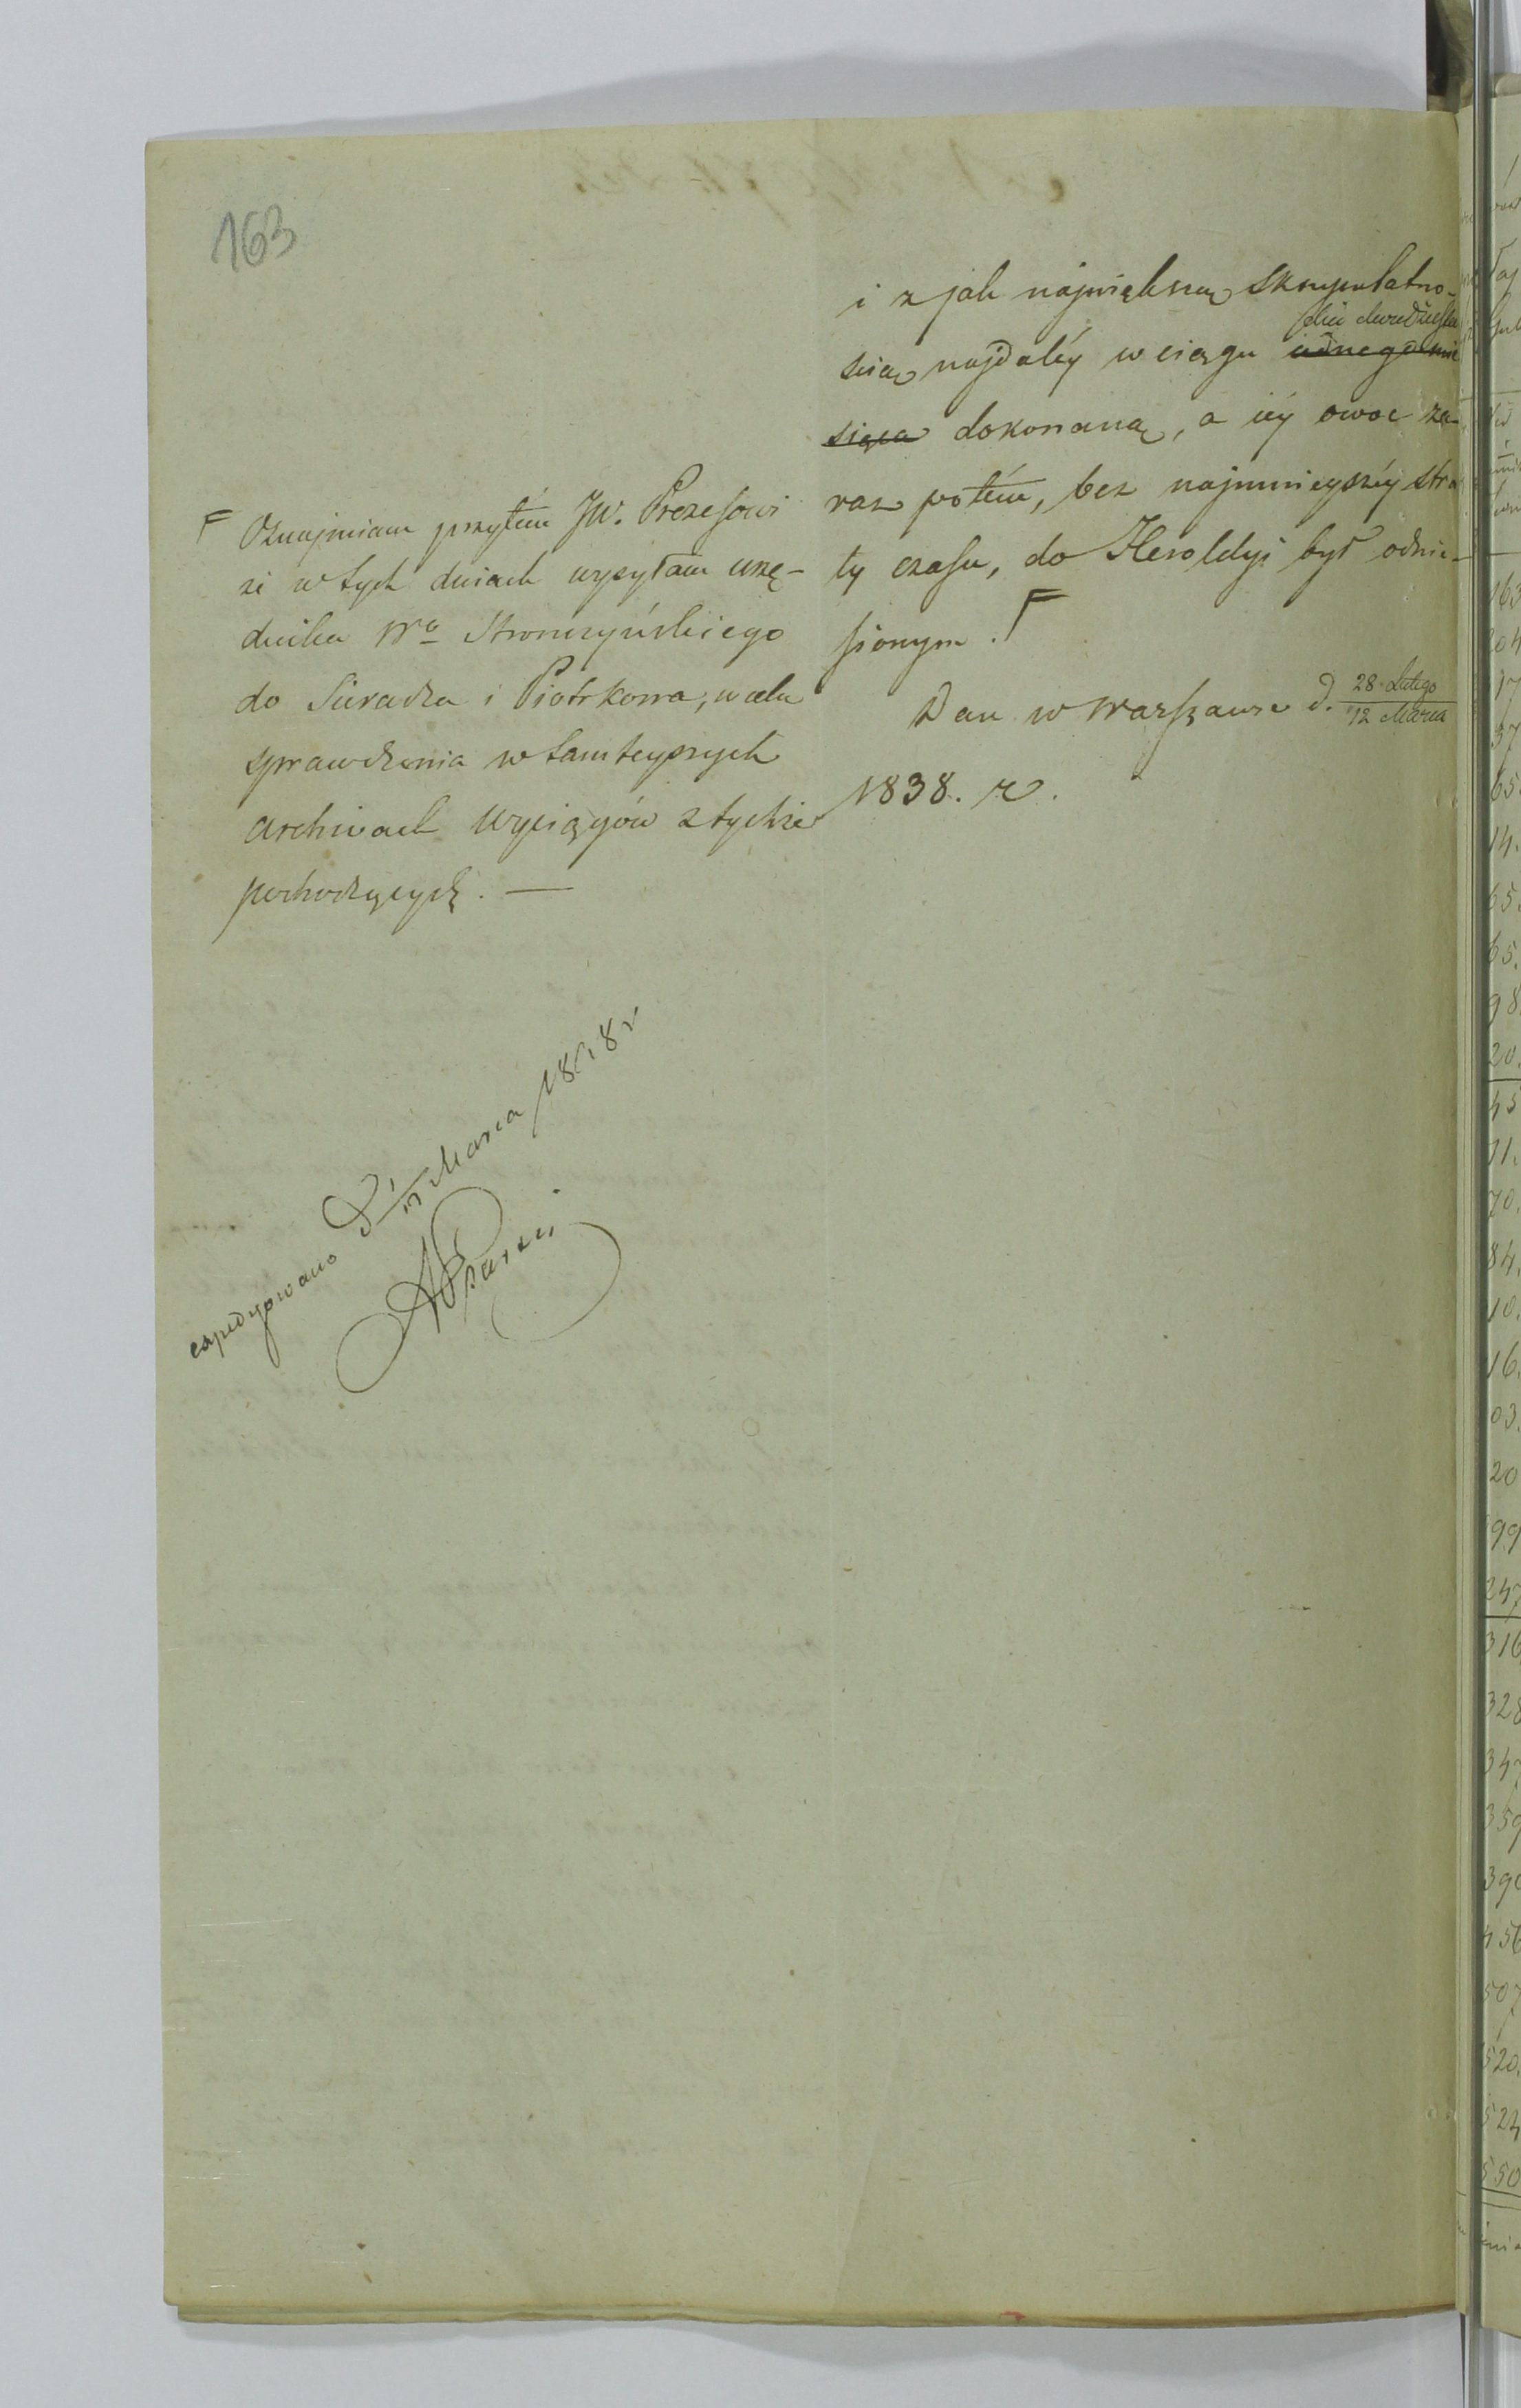 163
i z jak największą skrupulatno-
dni dwudziestu
ścią najdaléy w ciągu iednego mie
siąca dokonaną, a iéy owoc za-
raz potém, bez najmnieyszéy stra
ty czasu, do Heroldyi był odnie-
sionym. F
Dan w Warszawie d. 28 Lutego
12 Marca
1838. r.
F Oznajmiam przytém JW. Prezesowi
że w tych dniach wysyłam urzę-
dnika Wo Stronczyńskiego
do Sieradza i Piotrkowa, w celu
sprawdzenia w tamteyszych
archiwach wyciągów z tychże
pochodzących. —
expedyowano D 1/13 Marca 1838 r